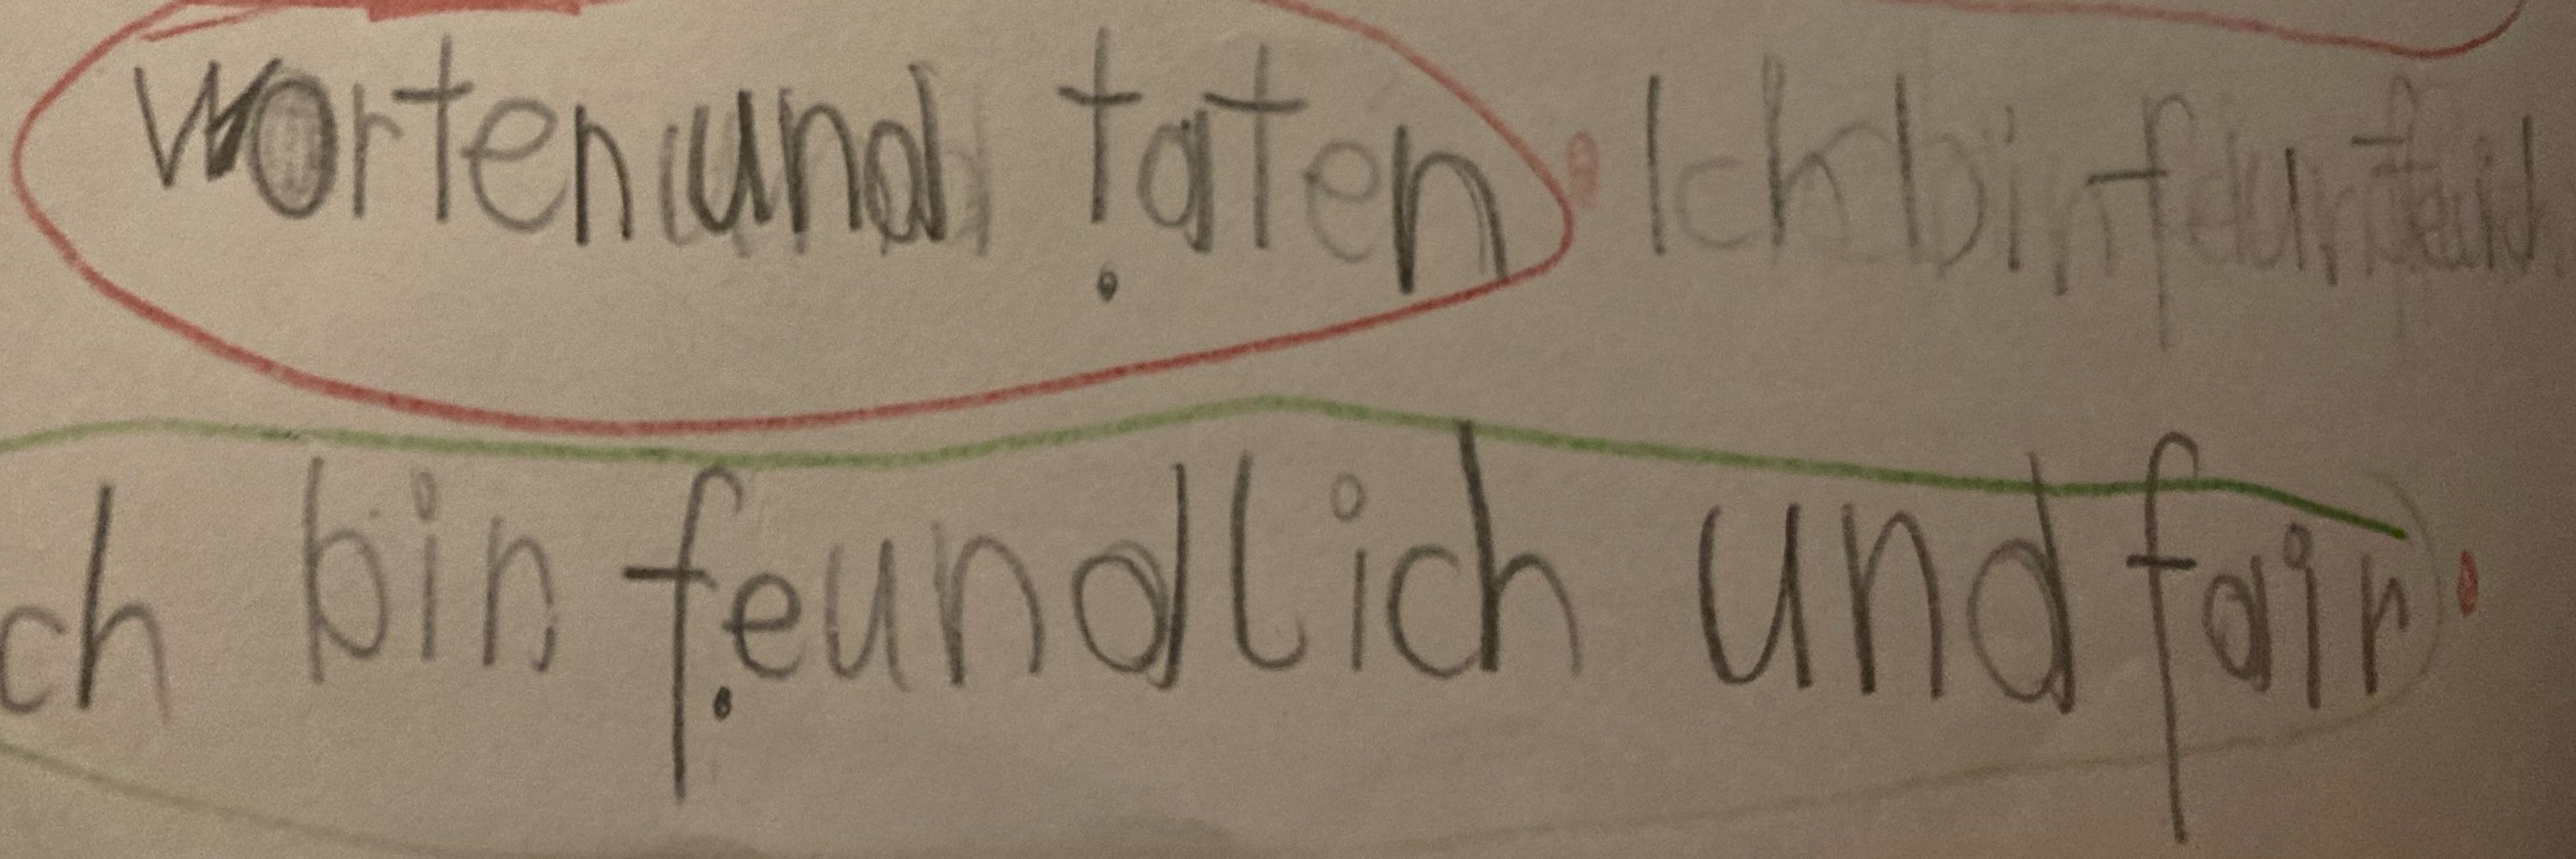 worten und taten. Ich bin
ch bin feundlich und fair.